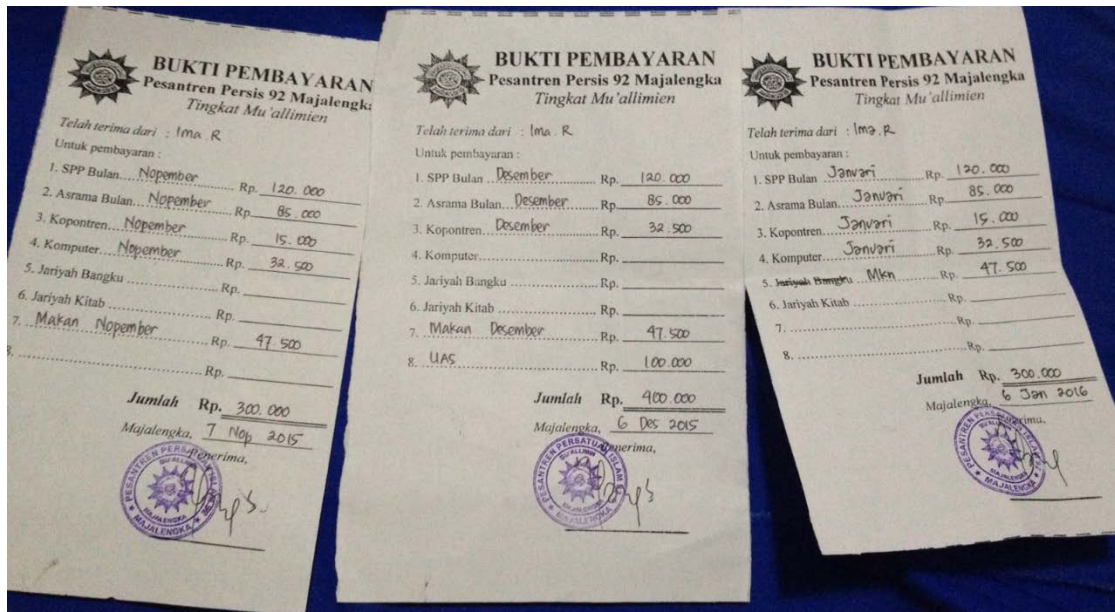 BUKTI PEMBAYARAN
Pesantren Persis 92 Majalengka
Tingkat Mu'allimien
Telah terima dari : Ima. R
Untuk pembayaran :
1. SPP Bulan... Nopember ........ Rp. 120. 000
2. Asrama Bulan... Nopember ........ Rp. 85. 000
3. Kopontren... Nopember ........ Rp. 15. 000
4. Komputer... Nopember ........ Rp. 32. 500
5. Jariyah Bangku ........ Rp.
6. Jariyah Kitab ........ Rp.
7. Makan Nopember ........ Rp. 47. 500
8. ........ Rp.
Jumlah Rp. 300. 000
Majalengka, 7 Nop 2015
Penerima,
PESANTREN PERSATUAN ISLAM
MAJALENGKA
BUKTI PEMBAYARAN
Pesantren Persis 92 Majalengka
Tingkat Mu'allimien
Telah terima dari : Ima. R
Untuk pembayaran :
1. SPP Bulan... Desember ........ Rp. 120. 000
2. Asrama Bulan... Desember ........ Rp. 85. 000
3. Kopontren... Desember ........ Rp. 32. 500
4. Komputer........ Rp.
5. Jariyah Bangku ........ Rp.
6. Jariyah Kitab ........ Rp.
7. Makan Desember ........ Rp. 47. 500
8. UAS ........ Rp. 100. 000
Jumlah Rp. 400. 000
Majalengka, 6 Des 2015
Penerima,
PESANTREN PERSATUAN ISLAM
MU'ALLIMIN
MAJALENGKA
BUKTI PEMBAYARAN
Pesantren Persis 92 Majalengka
Tingkat Mu'allimien
Telah terima dari : Ima. R
Untuk pembayaran :
1. SPP Bulan Januari ........ Rp. 120. 000
2. Asrama Bulan... Januari ........ Rp. 85. 000
3. Kopontren... Januari ........ Rp. 15. 000
4. Komputer... Januari ........ Rp. 32. 500
5. Jariyah Bangku Mkn ........ Rp. 47. 500
6. Jariyah Kitab ........ Rp.
7. ........ Rp.
8. ........ Rp.
Jumlah Rp. 300. 000
Majalengka, 6 Jan 2016
MAJALENGKA